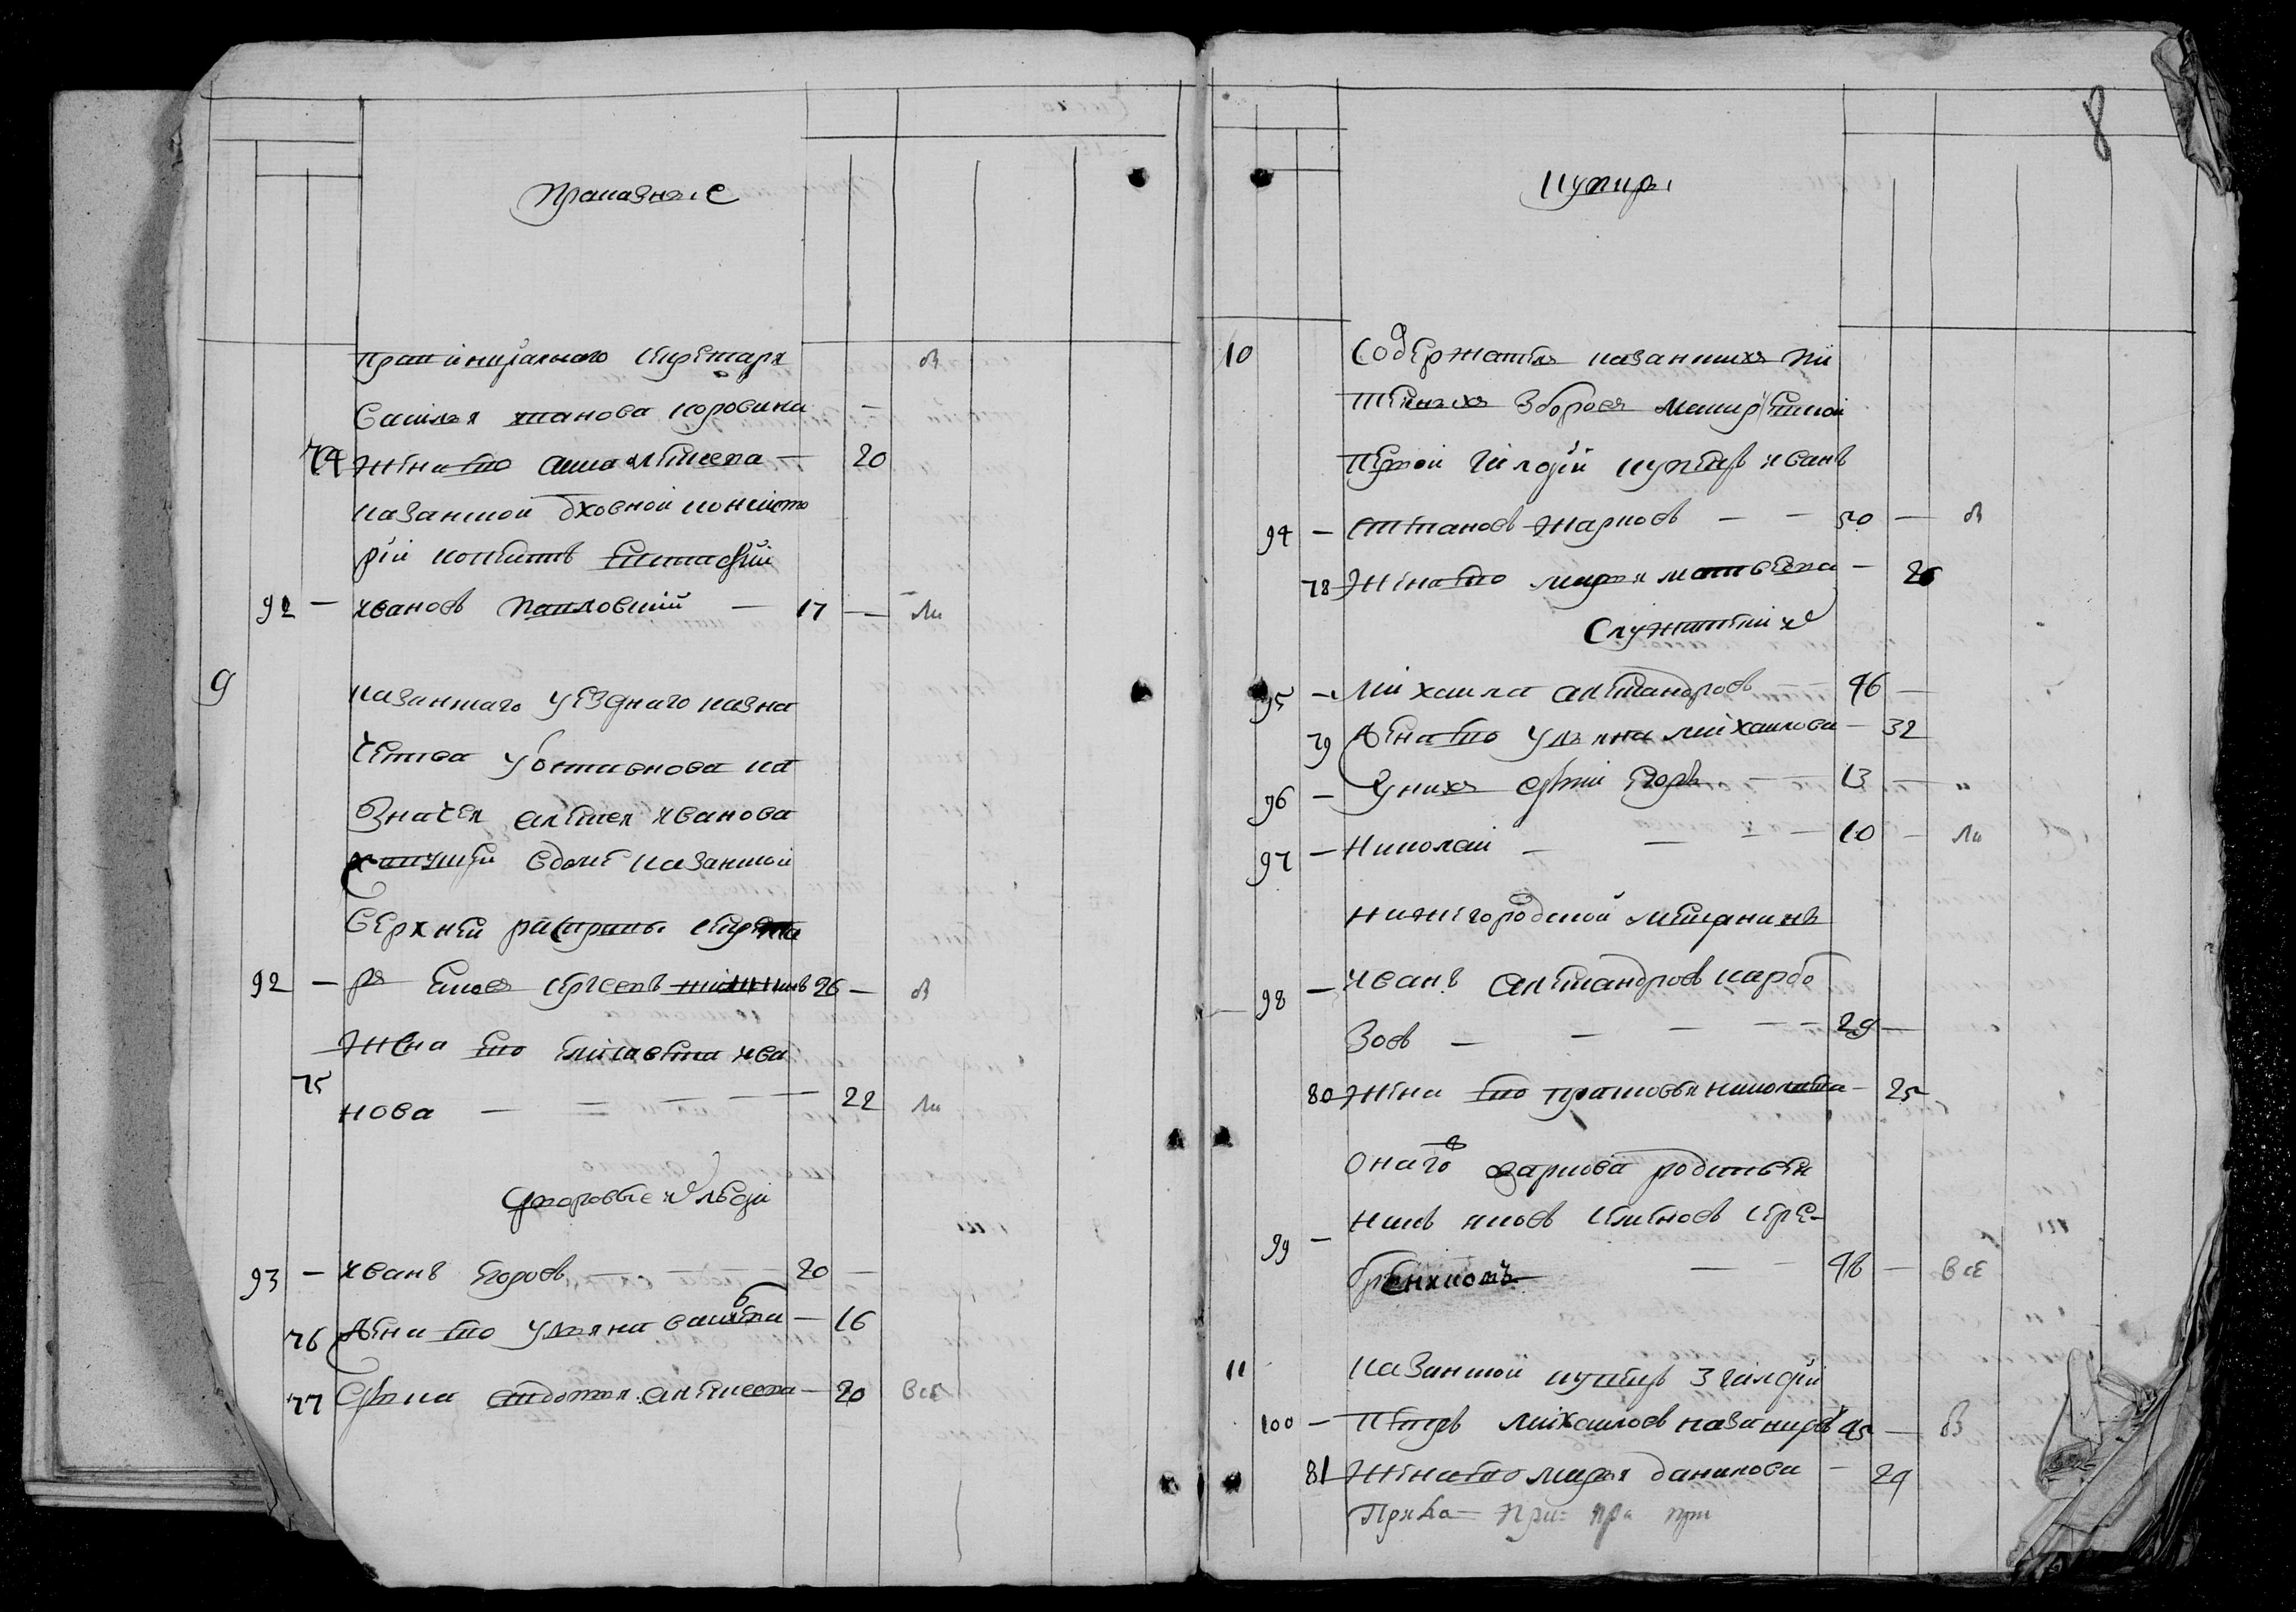 Приказные
праѵинциалнаго секретаря
Василья Иванова коровина
74 Жена ево анна алексеева — 20
казанской дховной консисто
рїи копеистъ Евстафии
91 — Ивановъ Павловский — 17 —
9 казанскаго уезднаго казна
чейства
значея алексея Иванова
живущей в доме казанской
верхней расправы секрета
92 — ря Яковъ Сергеевъ 26 — в
Жена ево елисавета ива
75 нова — 22
дворовые их люди
93 — Иванъ Егоровъ 20 —
76 Жена ево ульяна васильева — 16
77 девка авдотья алексеева — 20 все
8
Купцы
10 Содержатель казанских пи
тейных зборовъ
первой гилдїи купецъ иванъ
94 — степановъ жарковъ — — 50 — в
78 Жена ево марья матвеева — 26
служители их
95 — михаила александровъ 46 —
79 Жена ево ульяна михаилова — 32
96 — у них дети Егоръ — 13 —
97 — Николай — — 10 —
нижегородской мещанинъ
98 — Иванъ александровъ карбо
зовъ — — — 29 —
80 Жена ево прасковья николаева — 25
онаго жаркова родствен
99 — никъ яковъ семеновъ сере-
бренниковъ — — 48 — все
11 казанской купецъ 3 гилдїи
100 — Петръ михаиловъ казанцовъ 45 — в
81 Жена ево марья данилова — 29
при пра